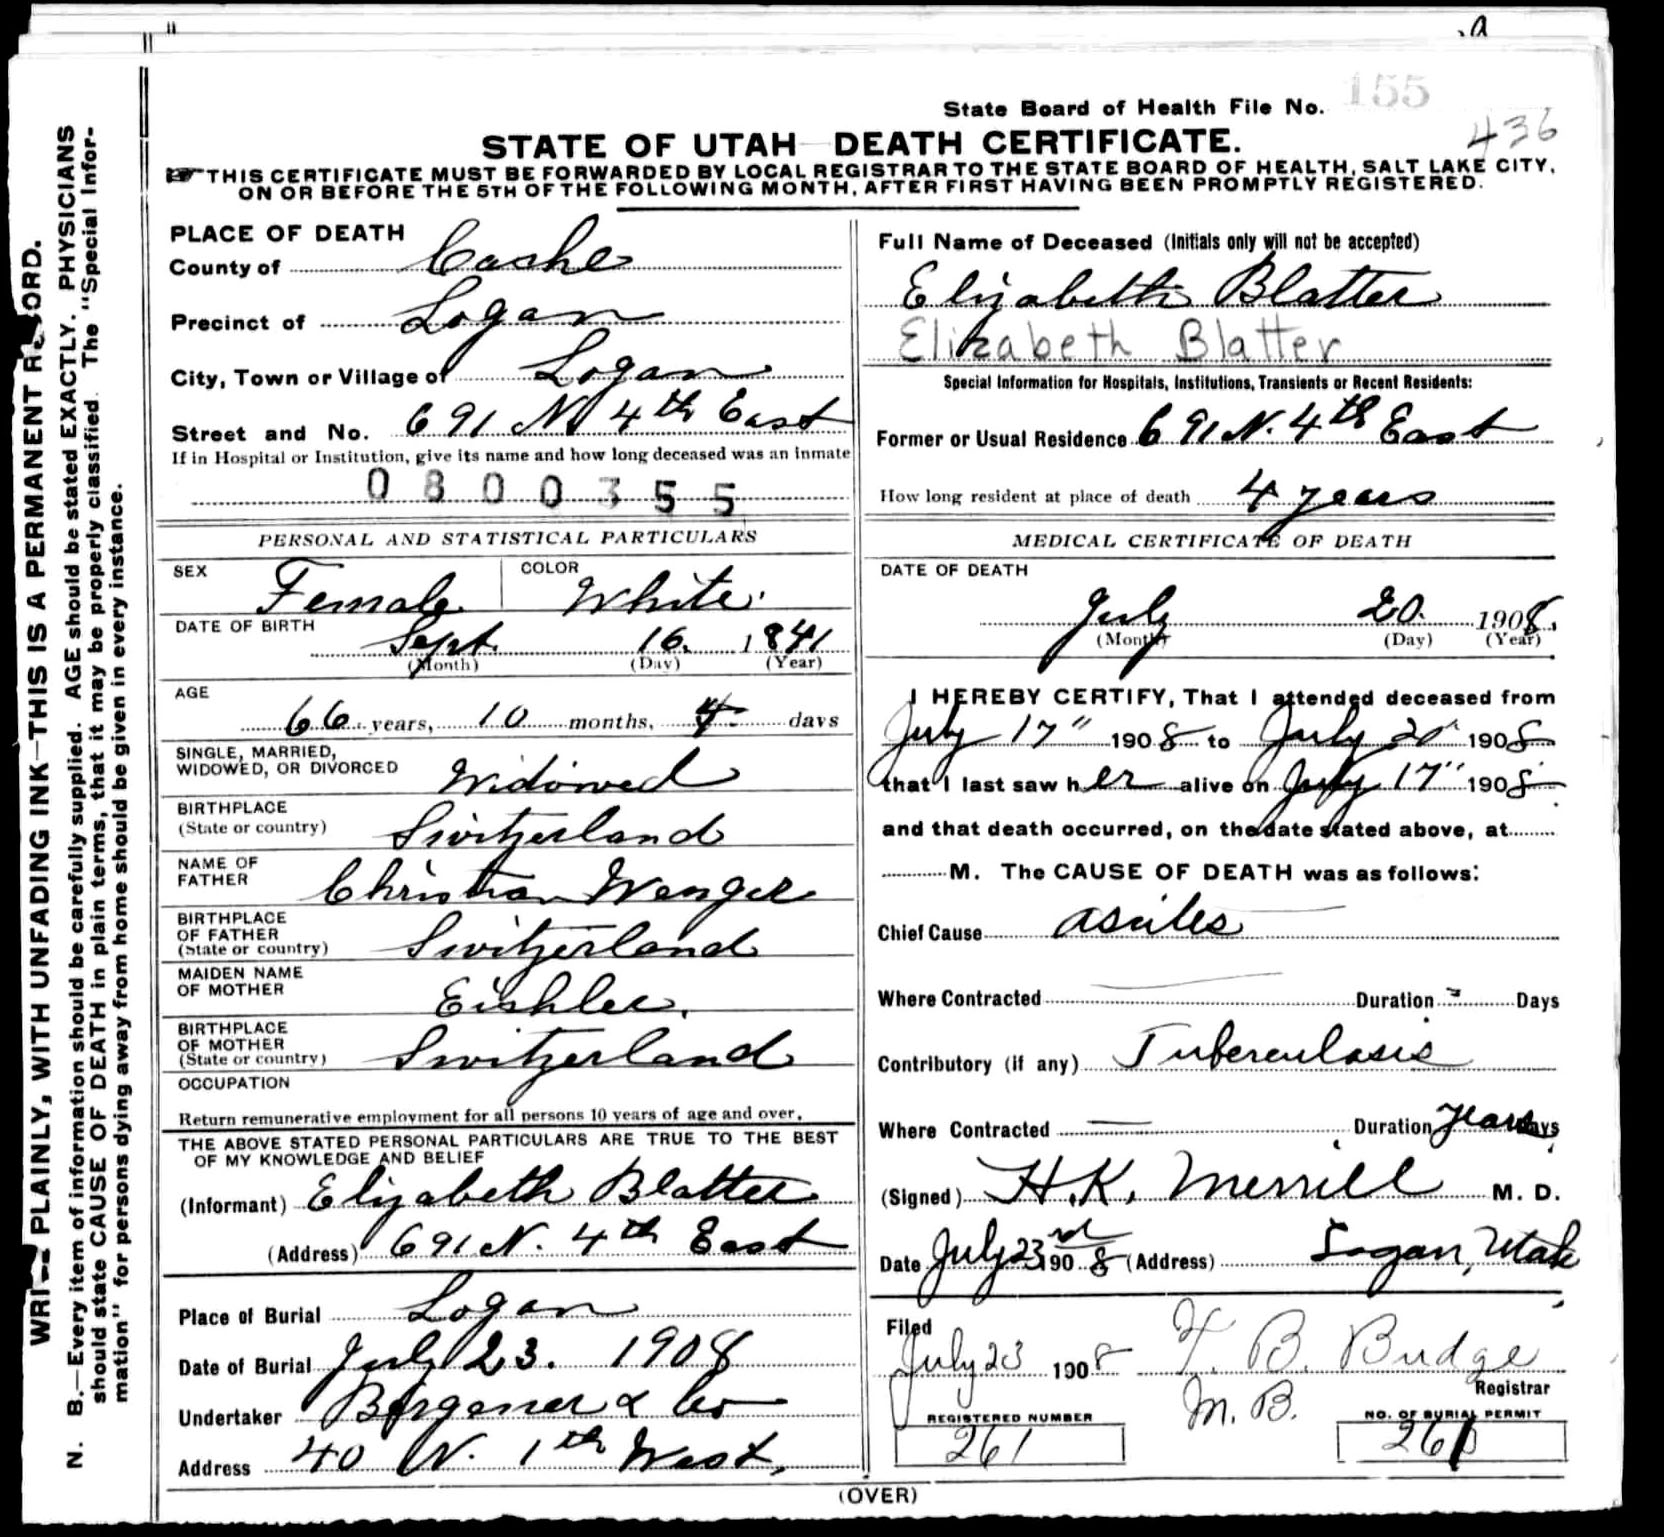 State Board of Health File No. 155
436
STATE OF UTAH—DEATH CERTIFICATE.
THIS CERTIFICATE MUST BE FORWARDED BY LOCAL REGISTRAR TO THE STATE BOARD OF HEALTH, SALT LAKE CITY,
ON OR BEFORE THE 5TH OF THE FOLLOWING MONTH, AFTER FIRST HAVING BEEN PROMPTLY REGISTERED.
WRITE PLAINLY, WITH UNFADING INK—THIS IS A PERMANENT RECORD.
N. B.—Every item of information should be carefully supplied. AGE should be stated EXACTLY. PHYSICIANS
should state CAUSE OF DEATH in plain terms, that it may be properly classified. The "Special Infor-
mation" for persons dying away from home should be given in every instance.
PLACE OF DEATH
County of Cache
Precinct of Logan
City, Town or Village of Logan
Street and No. 691 N 4th East
If in Hospital or Institution, give its name and how long deceased was an inmate
0800355
PERSONAL AND STATISTICAL PARTICULARS
SEX Female COLOR White.
DATE OF BIRTH
Sept. 16. 1841
(Month) (Day) (Year)
AGE
66 years, 10 months, 4 days
SINGLE, MARRIED,
WIDOWED, OR DIVORCED Widowed
BIRTHPLACE
(State or country) Switzerland
NAME OF
FATHER Christian Wenger
BIRTHPLACE
OF FATHER
(State or country) Switzerland
MAIDEN NAME
OF MOTHER Eishler.
BIRTHPLACE
OF MOTHER
(State or country) Switzerland
OCCUPATION
Return remunerative employment for all persons 10 years of age and over.
THE ABOVE STATED PERSONAL PARTICULARS ARE TRUE TO THE BEST
OF MY KNOWLEDGE AND BELIEF
(Informant) Elizabeth Blatter
(Address) 691 N. 4th East
Place of Burial Logan
Date of Burial July 23. 1908
Undertaker & Co
Address 40 N. 1th West,
Full Name of Deceased (Initials only will not be accepted)
Elizabeth Blatter
Elizabeth Blatter
Special Information for Hospitals, Institutions, Transients or Recent Residents:
Former or Usual Residence 691 N. 4th East
How long resident at place of death 4 years
MEDICAL CERTIFICATE OF DEATH
DATE OF DEATH
July 20. 1908.
(Month) (Day) (Year)
I HEREBY CERTIFY, That I attended deceased from
July 17" 1908 to July 20" 1908
that I last saw her alive on July 17" 1908
and that death occurred, on the date stated above, at
M. The CAUSE OF DEATH was as follows:
Chief Cause ascites
Where Contracted Duration Days
Contributory (if any) Tuberculosis
Where Contracted — Duration Years Days
(Signed) H.K. Merrill M. D.
Date July 23rd 1908 (Address) Logan, Utah
Filed
July 23 1908 T. B. Budge
Registrar
M. B.
REGISTERED NUMBER
261
NO. OF BURIAL PERMIT
261
(OVER)